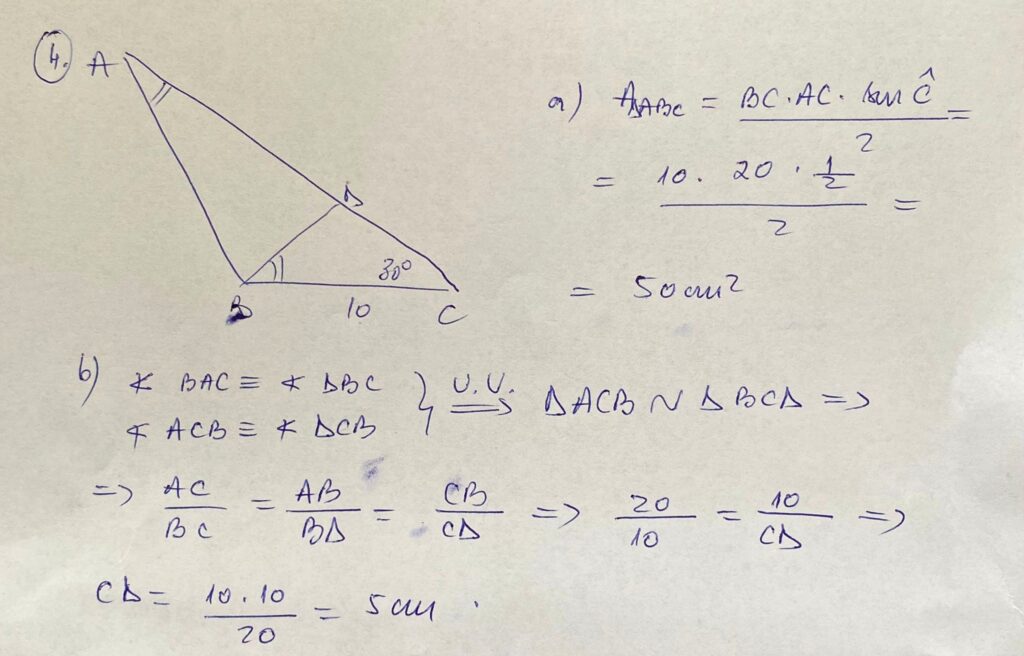 4.
A
D
30°
B 10 C
a) A△ABC = BC·AC·sin Ĉ / 2 =
= 10 · 20 · 1/2 / 2 =
= 50 cm²
b) ∢ BAC ≡ ∢ DBC
∢ ACB ≡ ∢ DCB } U.U. ⇒ △ACB ~ △BCD =>
=> AC/BC = AB/BD = CB/CD => 20/10 = 10/CD =>
CD = 10·10/20 = 5 cm.